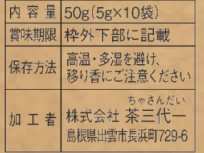 内容量 50g(5g×10袋)
賞味期限 枠外下部に記載
保存方法 高温・多湿を避け、
移り香にご注意ください
ちゃさんだい
加工者 株式会社 茶三代一
島根県出雲市長浜町729-6